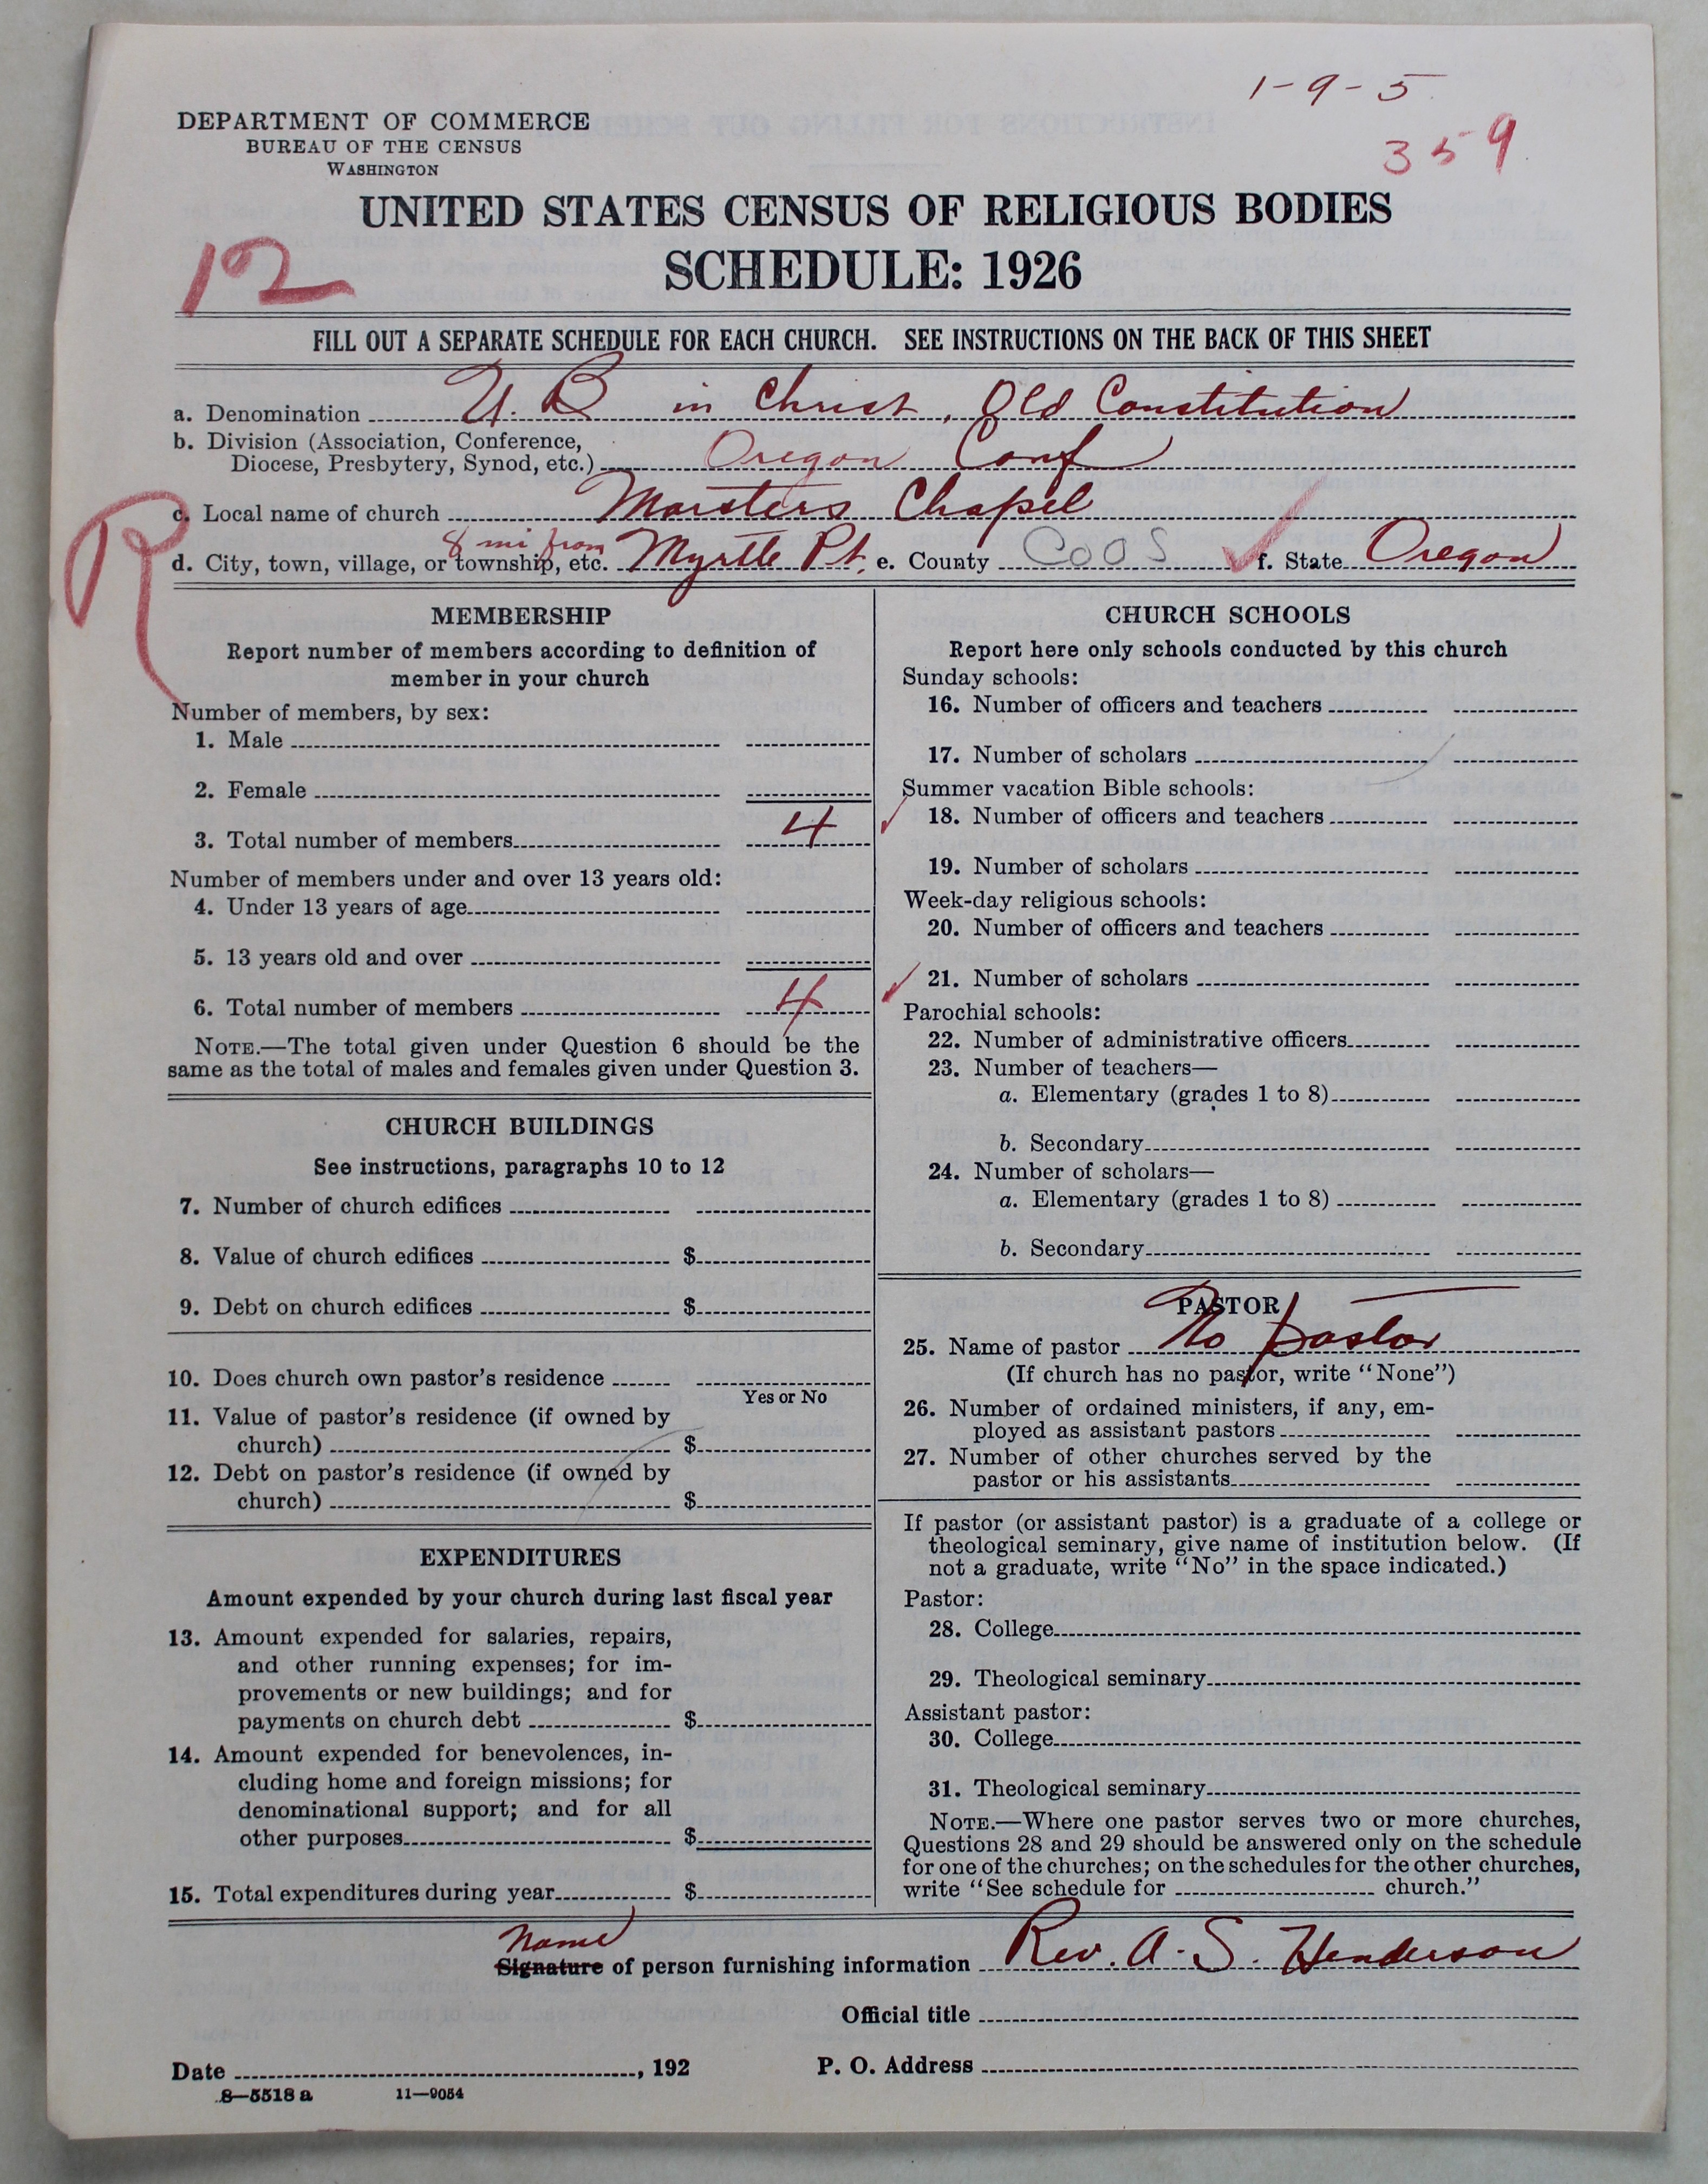 1-9-5
359
DEPARTMENT OF COMMERCE
BUREAU OF THE CENSUS
WASHINGTON
UNITED STATES CENSUS OF RELIGIOUS BODIES
SCHEDULE: 1926
12
FILL OUT A SEPARATE SCHEDULE FOR EACH CHURCH. SEE INSTRUCTIONS ON THE BACK OF THIS SHEET
a. Denomination U. B in Christ, Old Constitution
b. Division (Association, Conference,
Diocese, Presbytery, Synod, etc.) Oregon Conf
R
c. Local name of church Marsters Chapel
d. City, town, village, or township, etc. 8 mi from Myrtle Pt. e. County COOS f. State Oregon
MEMBERSHIP
Report number of members according to definition of
member in your church
Number of members, by sex:
1. Male
2. Female
3. Total number of members 4
Number of members under and over 13 years old:
4. Under 13 years of age
5. 13 years old and over
6. Total number of members 4
NOTE.—The total given under Question 6 should be the
same as the total of males and females given under Question 3.
CHURCH BUILDINGS
See instructions, paragraphs 10 to 12
7. Number of church edifices
8. Value of church edifices $
9. Debt on church edifices $
10. Does church own pastor's residence
Yes or No
11. Value of pastor's residence (if owned by
church) $
12. Debt on pastor's residence (if owned by
church) $
EXPENDITURES
Amount expended by your church during last fiscal year
13. Amount expended for salaries, repairs,
and other running expenses; for im-
provements or new buildings; and for
payments on church debt $
14. Amount expended for benevolences, in-
cluding home and foreign missions; for
denominational support; and for all
other purposes $
15. Total expenditures during year $
CHURCH SCHOOLS
Report here only schools conducted by this church
Sunday schools:
16. Number of officers and teachers
17. Number of scholars
Summer vacation Bible schools:
18. Number of officers and teachers
19. Number of scholars
Week-day religious schools:
20. Number of officers and teachers
21. Number of scholars
Parochial schools:
22. Number of administrative officers
23. Number of teachers—
a. Elementary (grades 1 to 8)
b. Secondary
24. Number of scholars—
a. Elementary (grades 1 to 8)
b. Secondary
PASTOR
25. Name of pastor No pastor
(If church has no pastor, write "None")
26. Number of ordained ministers, if any, em-
ployed as assistant pastors
27. Number of other churches served by the
pastor or his assistants
If pastor (or assistant pastor) is a graduate of a college or
theological seminary, give name of institution below. (If
not a graduate, write "No" in the space indicated.)
Pastor:
28. College
29. Theological seminary
Assistant pastor:
30. College
31. Theological seminary
NOTE.—Where one pastor serves two or more churches,
Questions 28 and 29 should be answered only on the schedule
for one of the churches; on the schedules for the other churches,
write "See schedule for church."
Name
Signature of person furnishing information Rev. A. S. Henderson
Official title
Date , 192 P. O. Address
8—5518 a 11—9054